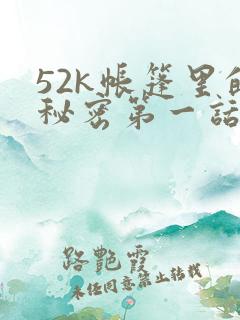 52k帐篷里的
秘密第一話
路艷霞
未任同意禁止转载